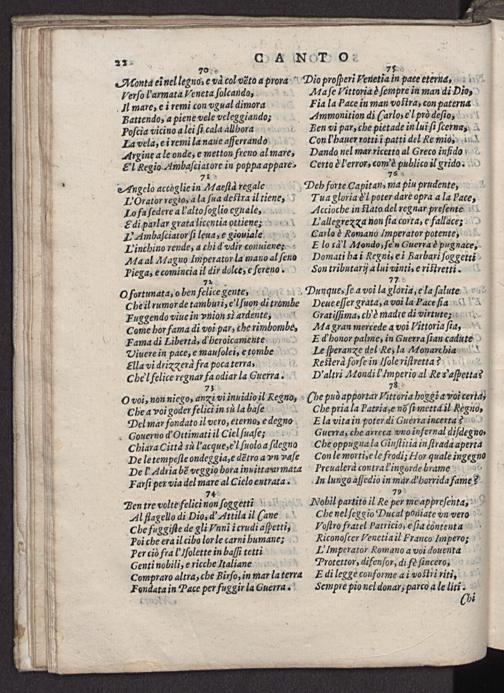 22
CANTO
70
Monta ei nel legno, e và col vẽto a prora
Verso l'armata Veneta solcando,
Il mare, e i remi con vgual dimora
Battendo, a piene vele veleggiando;
Poscia vicino a lei si cala allhora
La vela, e i remi la naue afferrando
Argine a le onde, e metton freno al mare,
E'l Regio Ambasciatore in poppa appare.
71
Angelo accoglie in Maestà regale
L'Orator regio, a la sua destra il tiene,
Lo fa sedere a l'alto soglio eguale,
E di parlar grata licentia ottiene;
L'Ambasciator si leua, e giouiale
L'inchino rende, a chi d'vdir conuiene;
Ma al Magno Imperator la mano al seno
Piega, e comincia il dir dolce, e sereno.
72
O fortunata, o ben felice gente,
Che il rumor de tamburi, e'l suon di trombe
Fuggendo viue in vnion sì ardente,
Come hor fama di voi par, che rimbombe,
Fama di Libertà, d'heroicamente
Viuere in pace, e mausolei, e tombe
Ella vi drizzerà fra poca terra,
Che'l felice regnar fa odiar la Guerra.
73
O voi, non niego, anzi vi inuidio il Regno,
Che a voi goder felici in sù la base
Del mar fondato il vero, eterno, e degno
Gouerno d'Ottimati il Ciel suase;
Chiara Città sù l'acque, e'l suolo a sdegno
De le tempeste ondeggia, e dẽtro a vn vase
De l'Adria bẽ veggio hora inuitta armata
Farsi per via del mare al Cielo entrata.
74
Ben tre volte felici non soggetti
Al flagello di Dio, d'Attila il Cane
Che fuggiste de gli Vnni i crudi aspetti,
Poi che era il cibo lor le carni humane;
Per ciò fra l'Isolette in bassi tetti
Genti nobili, e ricche Italiane
Compraro altra, che Birso, in mar la terra
Fondata in Pace per fuggir la Guerra.
75
Dio prosperi Venetia in pace eterna,
Ma se Vittoria è sempre in man di Dio,
Fia la Pace in man vostra, con paterna
Ammonition di Carlo, e'l prò desio,
Ben vi par, che pietade in lui si scerna,
Con l'hauer rotti i patti del Re mio,
Dando nel marritto al Greco infido
Certo è l'error, com'è publico il grido.
76
Deh forte Capitan, ma piu prudente,
Tua gloria è'l poter dare opra a la Pace,
Accioche in stato del regnar presente
L'allegrezza non sia corta, e fallace;
Carlo è Romano Imperator potente,
E lo sà'l Mondo, se'n Guerra è pugnace,
Domati ha i Regni, e i Barbari soggetti
Son tributarij a lui vinti, e ristretti.
77
Dunque, se a voi la gloria, e la salute
Deue esser grata, a voi la Pace sia
Gratissima, ch'è madre di virtute;
Ma gran mercede a voi Vittoria sia,
E d'honor palme, in Guerra sian cadute
Le speranze del Re, la Monarchia
Resterà forse in Isole ristretta?
D'altri Mondi l'Imperio al Re s'aspetta?
78
Che può apportar Vittoria hoggi a voi certa,
Che pria la Patria, e nõ si metta il Regno,
E la vita in poter di Guerra incerta?
Guerra, che arreca vno infernal disdegno,
Che oppugna la Giustitia in strada aperta
Con le morti, e le frodi; Hor quale ingegno
Preualerà contra l'ingorde brame
In lungo assedio in mar d'horrida fame?
79
Nobil partito il Re per me appresenta,
Che nel seggio Ducal poniate vn vero
Vostro fratel Patricio, e sia contenta
Riconoscer Venetia il Franco Impero;
L'Imperator Romano a voi douenta
Protettor, difensor, di fè sincero,
E di legge conforme a i vostri riti,
Sempre pio nel donar, parco a le liti.
Chi